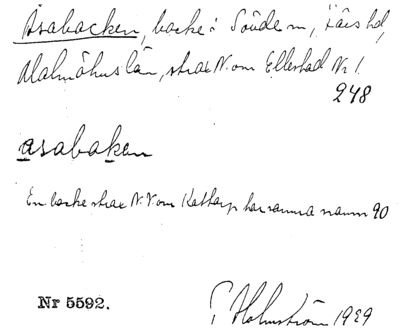 Åsabacken, backe i Sövde sn, Färs hd,
Malmöhus län, strax N. om Ellestad Nr 1.
248
asabaken
En backe strax N.V. om Kattarp har samma namn 90
Nr 5592.
Holmström 1929